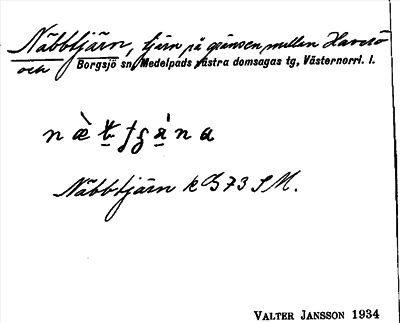 Näbbtjärn, tjärn på gränsen mellan Haverö
och Borgsjö sn, Medelpads västra domsagas tg, Västernorrl. l.
Näbbtjärn k B 73 S M.
VALTER JANSSON 1934